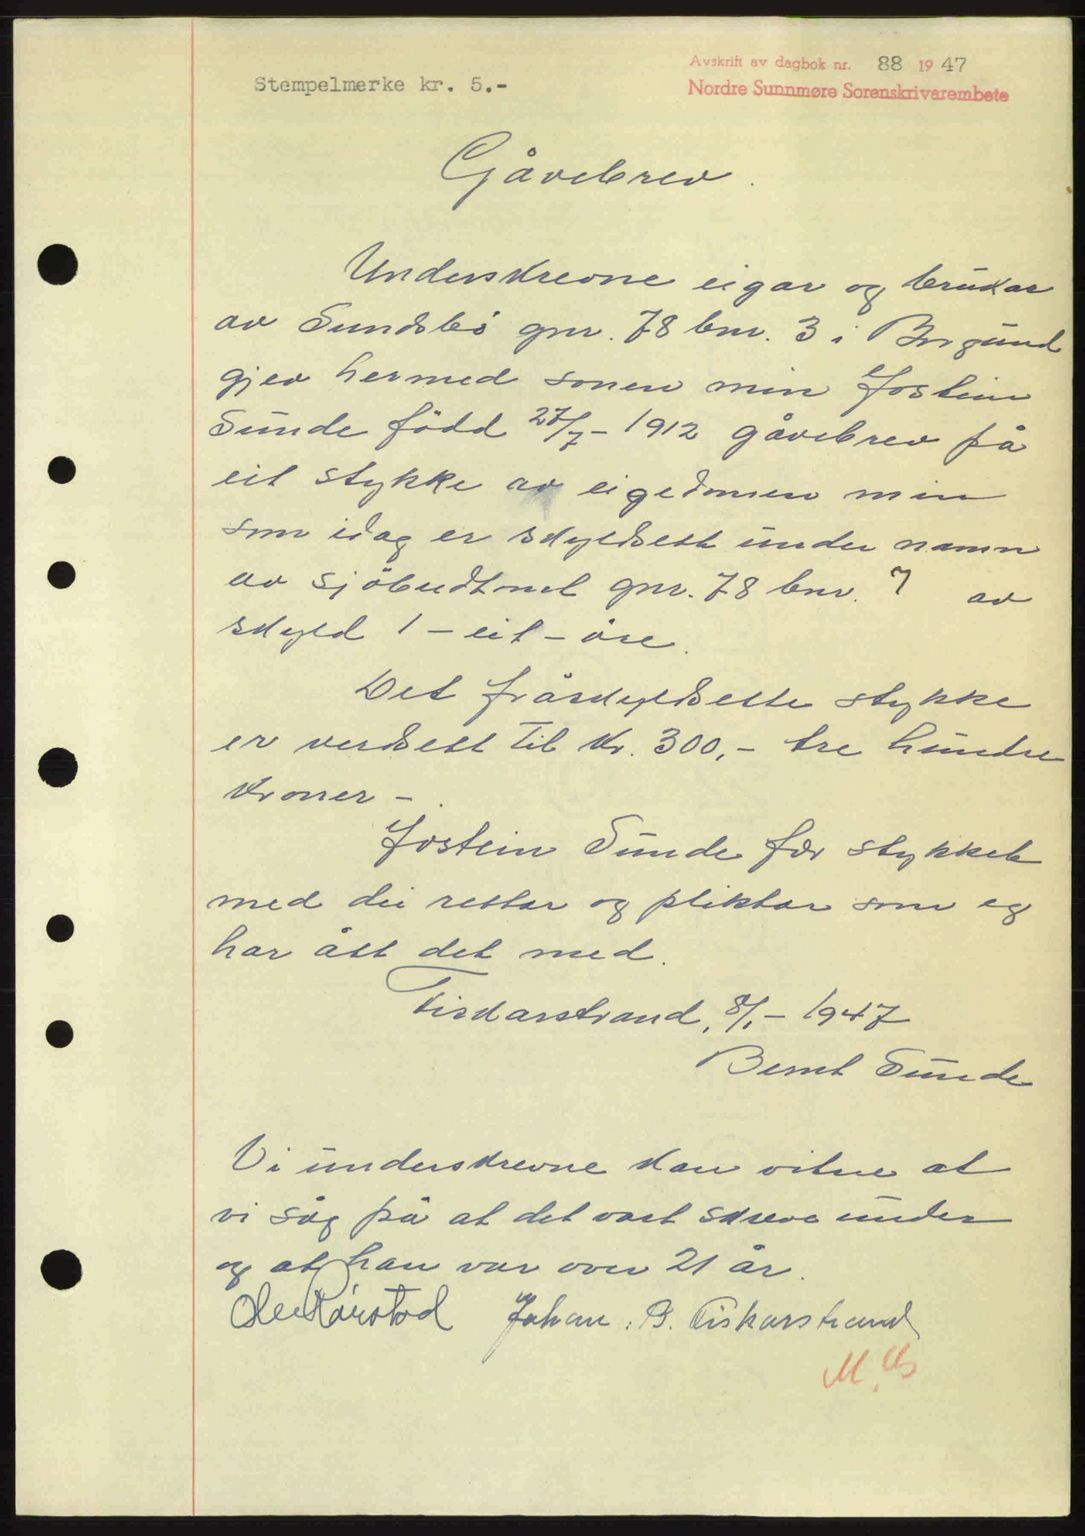 Stempelmerke kr. 5.-
Avskrift av dagbok nr. 88 1947
Nordre Sunnmøre Sorenskrivarembete
Gåvebrev.
Underskrevne eigar og brukar
av Sundsbö gnr. 78 bnr. 3 i Borgund
gjev hermed sonen min Jostein
Sunde född 27/7- 1912 gåvebrev på
eit stykke av eigedomen min
som idag er skyldsett under namn
av sjöbudtmt gnr. 78 bnr. 7 av
skyld 1 - eit - öre.
Det fråskyldsette stykke
er verdsett til kr. 300,- tre hundre
kroner -.
Jostein Sunde får stykket
med dei rettar og pliktar som eg
har ått det med.
Fiskarstrand, 8/1- 1947
Bernt Sunde
Vi underskrevne kan vitne at
vi såg på at det vart skreve under
og at han var over 21 år.
Ole Rörstad Johan. B. Fiskarstrand